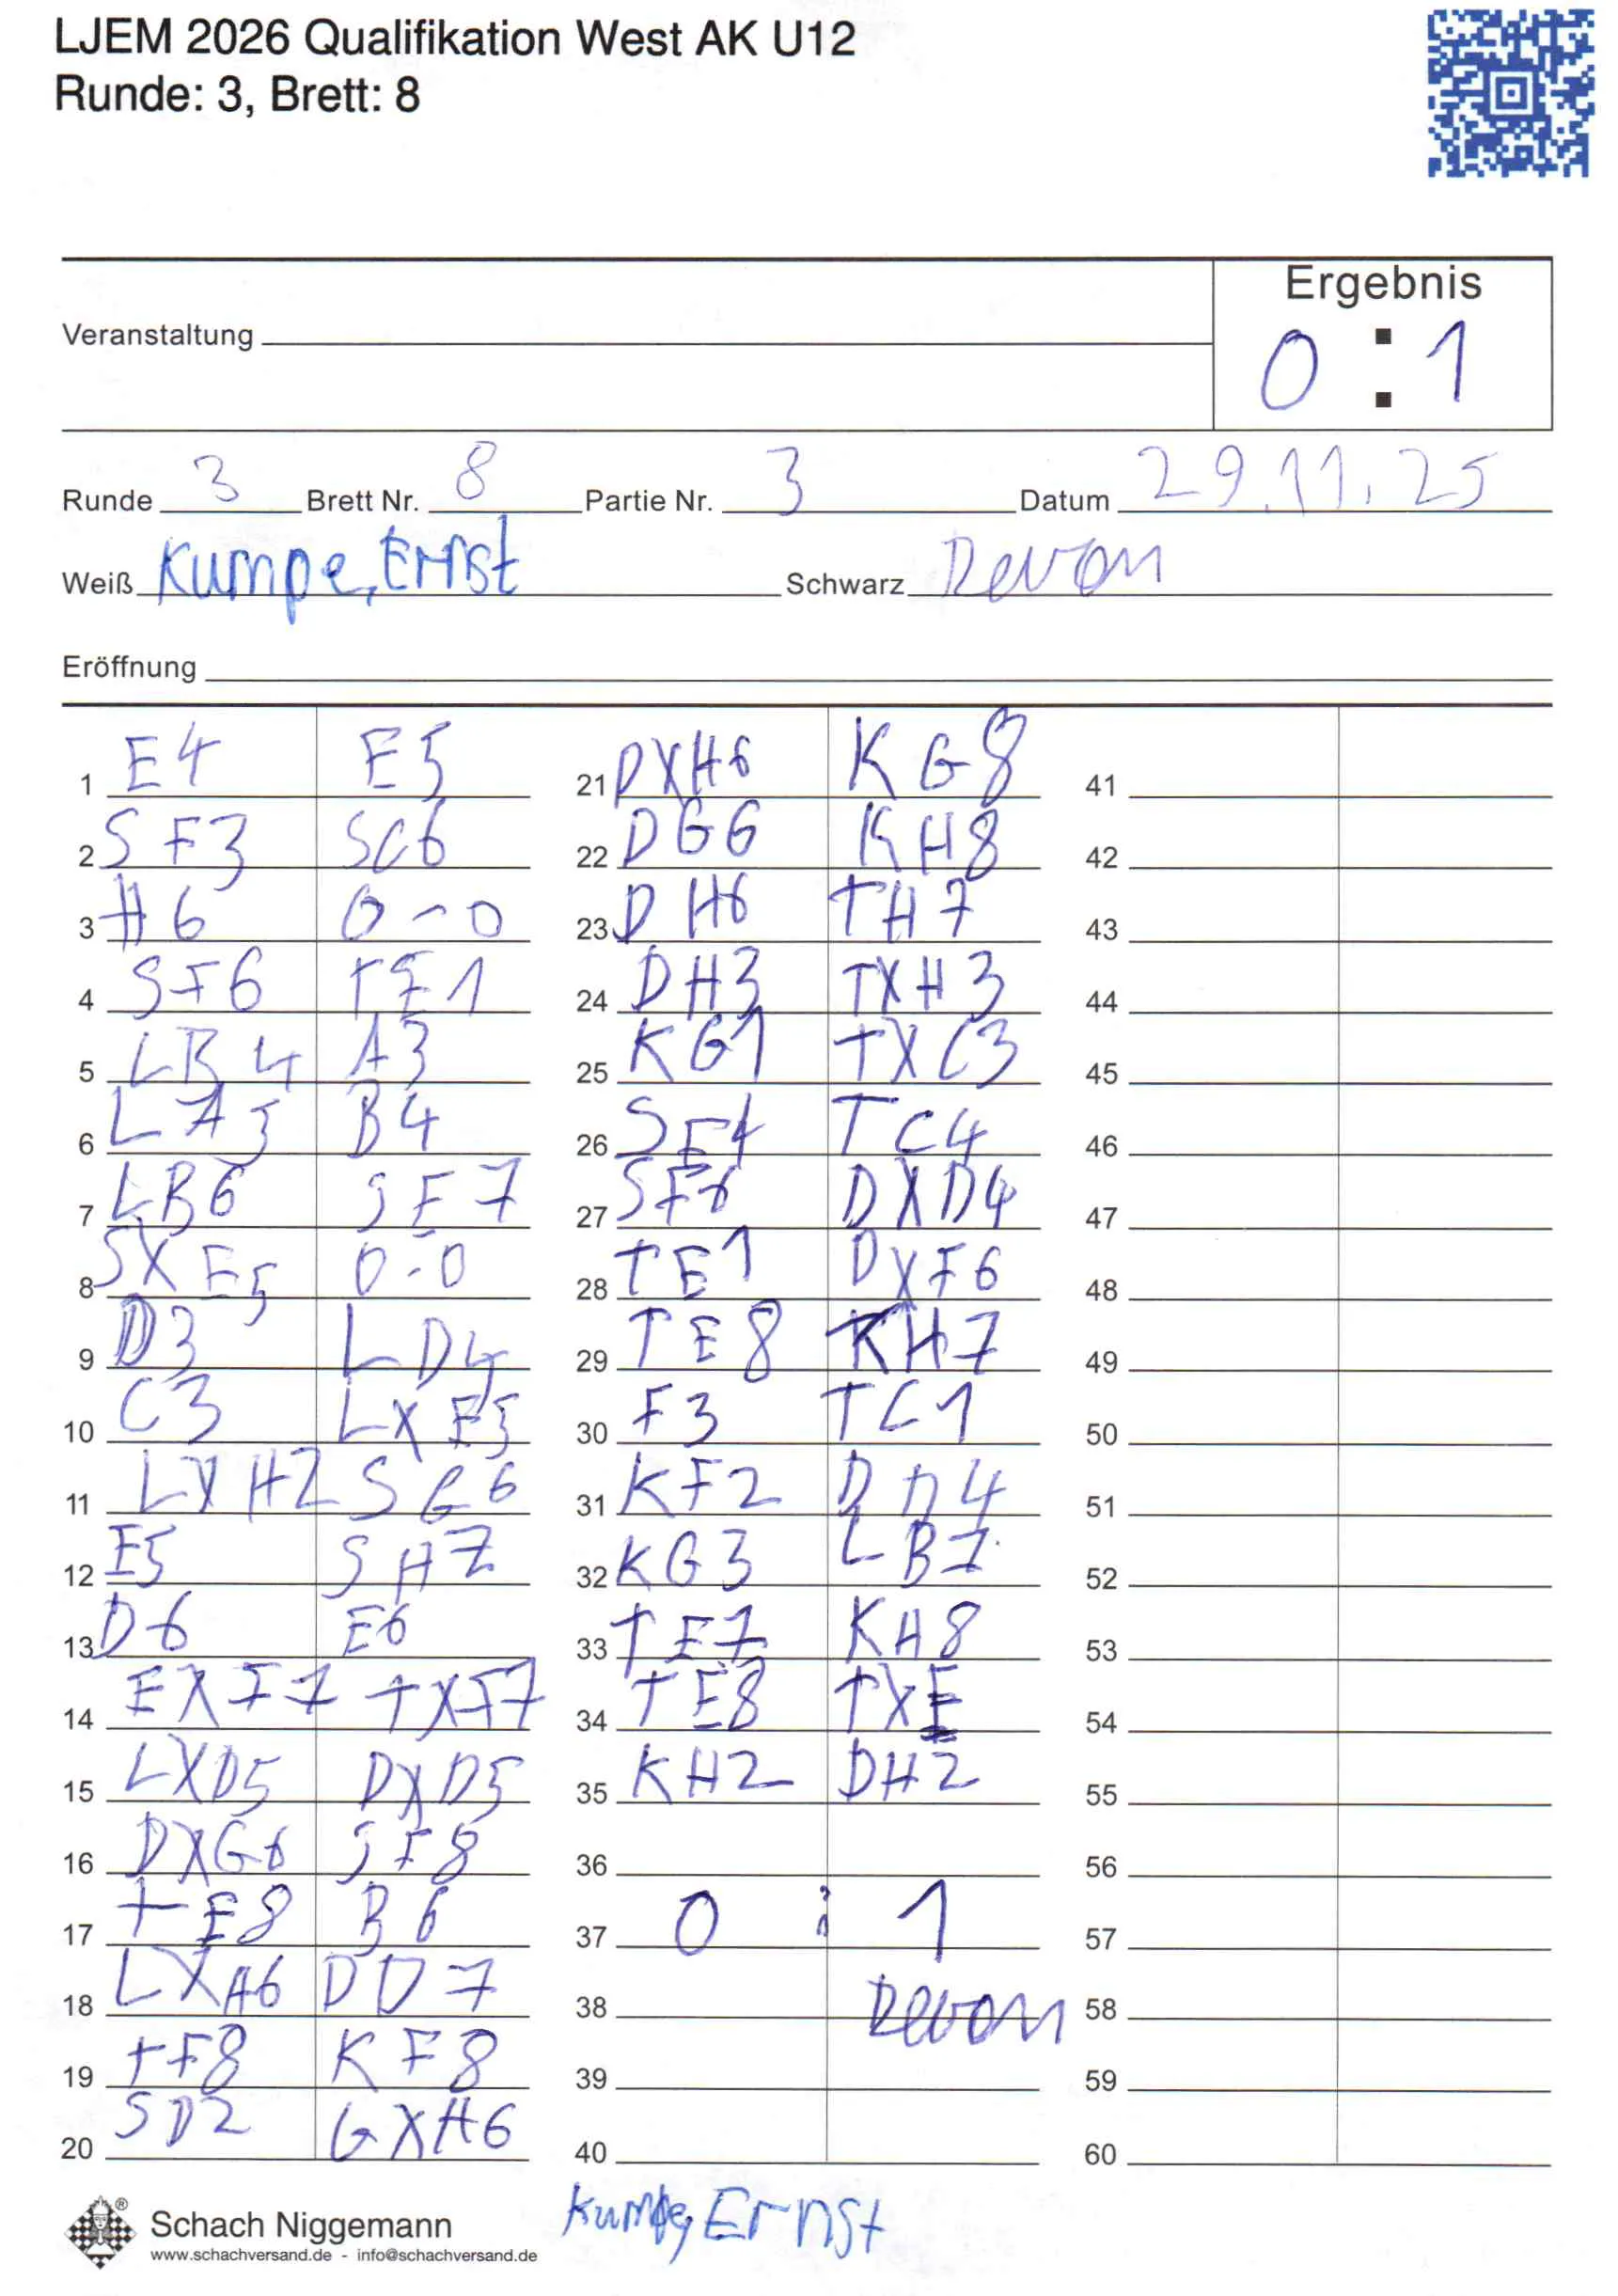 LJEM 2026 Qualifikation West AK U12
Runde: 3, Brett: 8
Ergebnis
0 : 1
Veranstaltung
Runde 3 Brett Nr. 8 Partie Nr. 3 Datum 29.11.25
Weiß Kumpe, Ernst Schwarz Devon
Eröffnung
1 E4 E5
2 SF3 SC6
3 H6 0-0
4 SF6 TE1
5 LB4 A3
6 LA5 B4
7 LB6 SE7
8 SXE5 0-0
9 D3 LD4
10 C3 LXE5
11 LXH2 SG6
12 E5 SH7
13 D6 E6
14 EXF7 TXF7
15 LXD5 DXD5
16 DXG6 SF8
17 TE8 B6
18 LXA6 DD7
19 TF8 KF8
20 SD2 GXH6
21 DXH6 KG8
22 DG6 KH8
23 DH6 TH7
24 DH3 TXH3
25 KG1 TXC3
26 SE4 TC4
27 SF6 DXD4
28 TE1 DXF6
29 TE8 KH7
30 F3 TC1
31 KF2 DD4
32 KG3 LB7
33 TE7 KH8
34 TE8 TXE
35 KH2 DH2
36
37 0 : 1
38 Devon
39
40
41
42
43
44
45
46
47
48
49
50
51
52
53
54
55
56
57
58
59
60
Kumpe, Ernst
®
Schach Niggemann
www.schachversand.de - info@schachversand.de